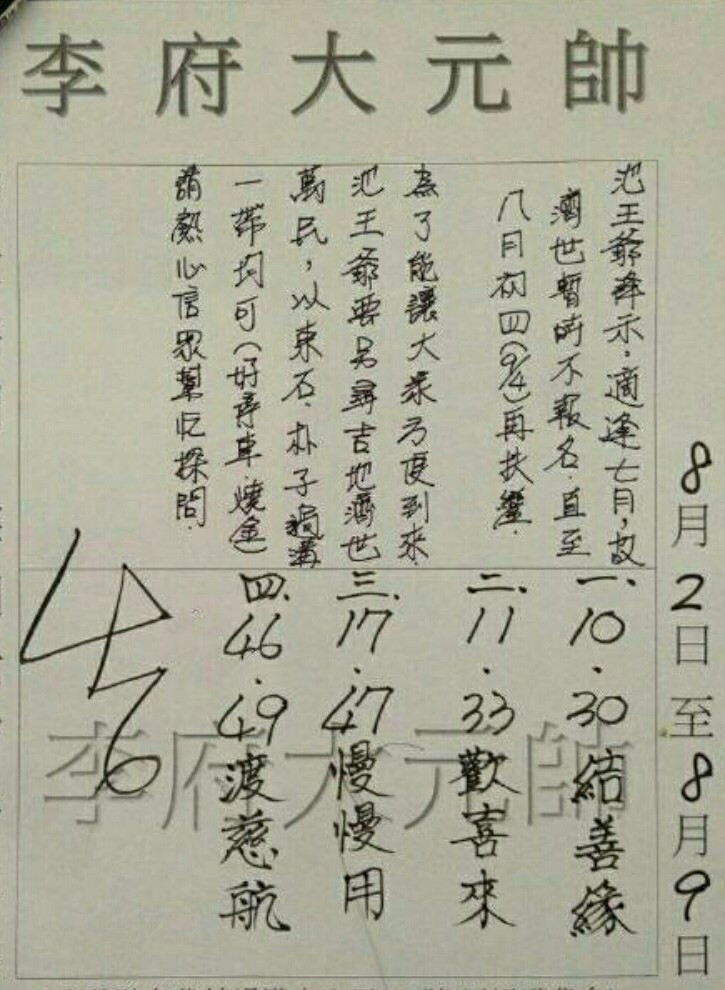 李府大元帥
8月2日至8月9日
池王爺降示,適逢七月,故
濟世暫時不報名.直至
八月初四(9/4)再扶鸞.
為了能讓大眾方便到來
池王爺要另尋吉地濟世
萬民,以東石.朴子
一帶均可(好停車.燒金)
請熱心信眾幫忙探問.
一.10.30結善緣
二.11.33歡喜來
三.17.47慢慢用
四.46.49渡慈航
476
李府大元帥